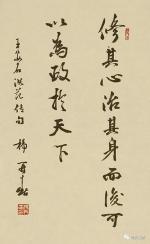 修其心治其身而後可
以為政於天下
王安石洪范傳句